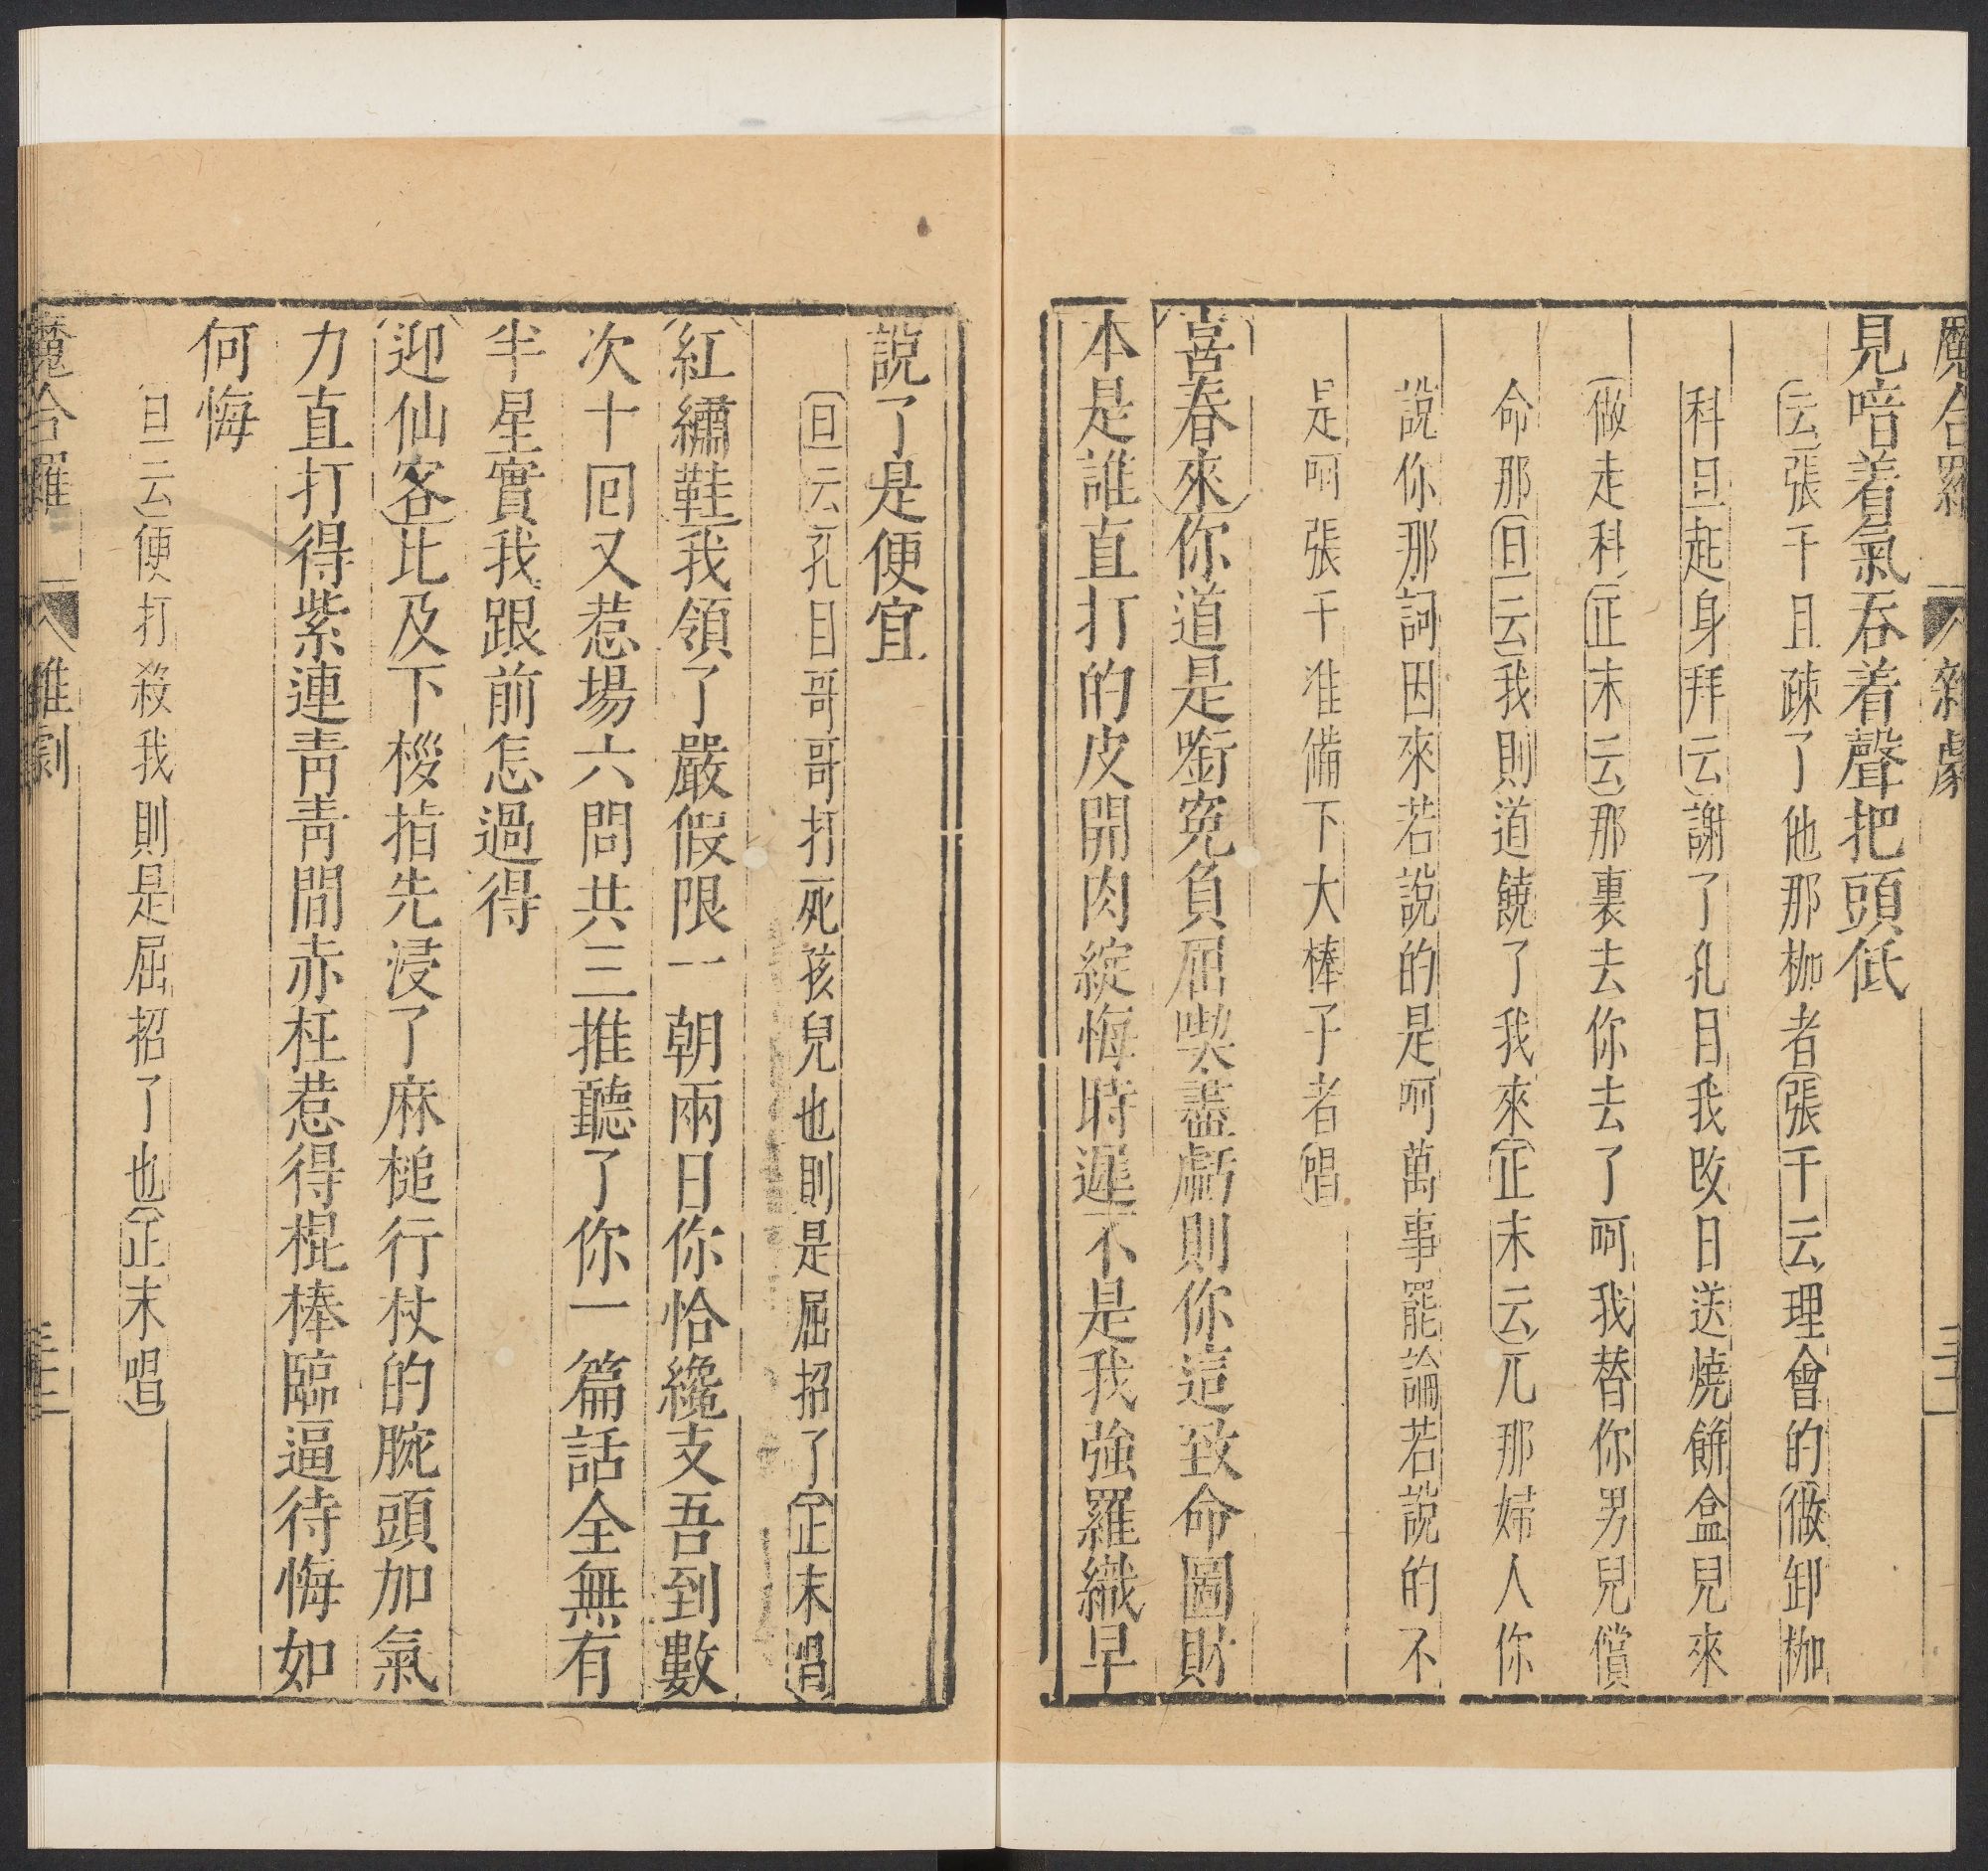 魔合羅 雜劇 三十二
見喑着氣吞着聲把頭低
云張千且疎了他那枷者張千云理會的做卸枷
科旦起身拜云謝了孔目我改日送燒餅盒兒來
做走科正末云那裏去你去了呵我替你男兒償
命那旦云我則道饒了我來正末云兀那婦人你
說你那詞因來若說的是呵萬事罷論若說的不
是呵張千准備下大棒子者唱
喜春來你道是啣寃負屈喫盡虧則你這致命圖財
本是誰直打的皮開肉綻悔時遲不是我強羅織早
說了是便宜
旦云孔目哥哥打死孩兒也則是屈招了正末唱
紅繡鞋我領了嚴假限一朝兩日你恰纔支吾到數
次十囘又惹場六問共三推聽了你一篇話全無有
半星實我跟前怎過得
迎仙客比及下桚指先浸了麻槌行杖的腕頭加氣
力直打得紫連靑靑間赤枉惹得棍棒臨逼待悔如
何悔
旦云便打殺我則是屈招了也正末唱
魔合羅 雜劇